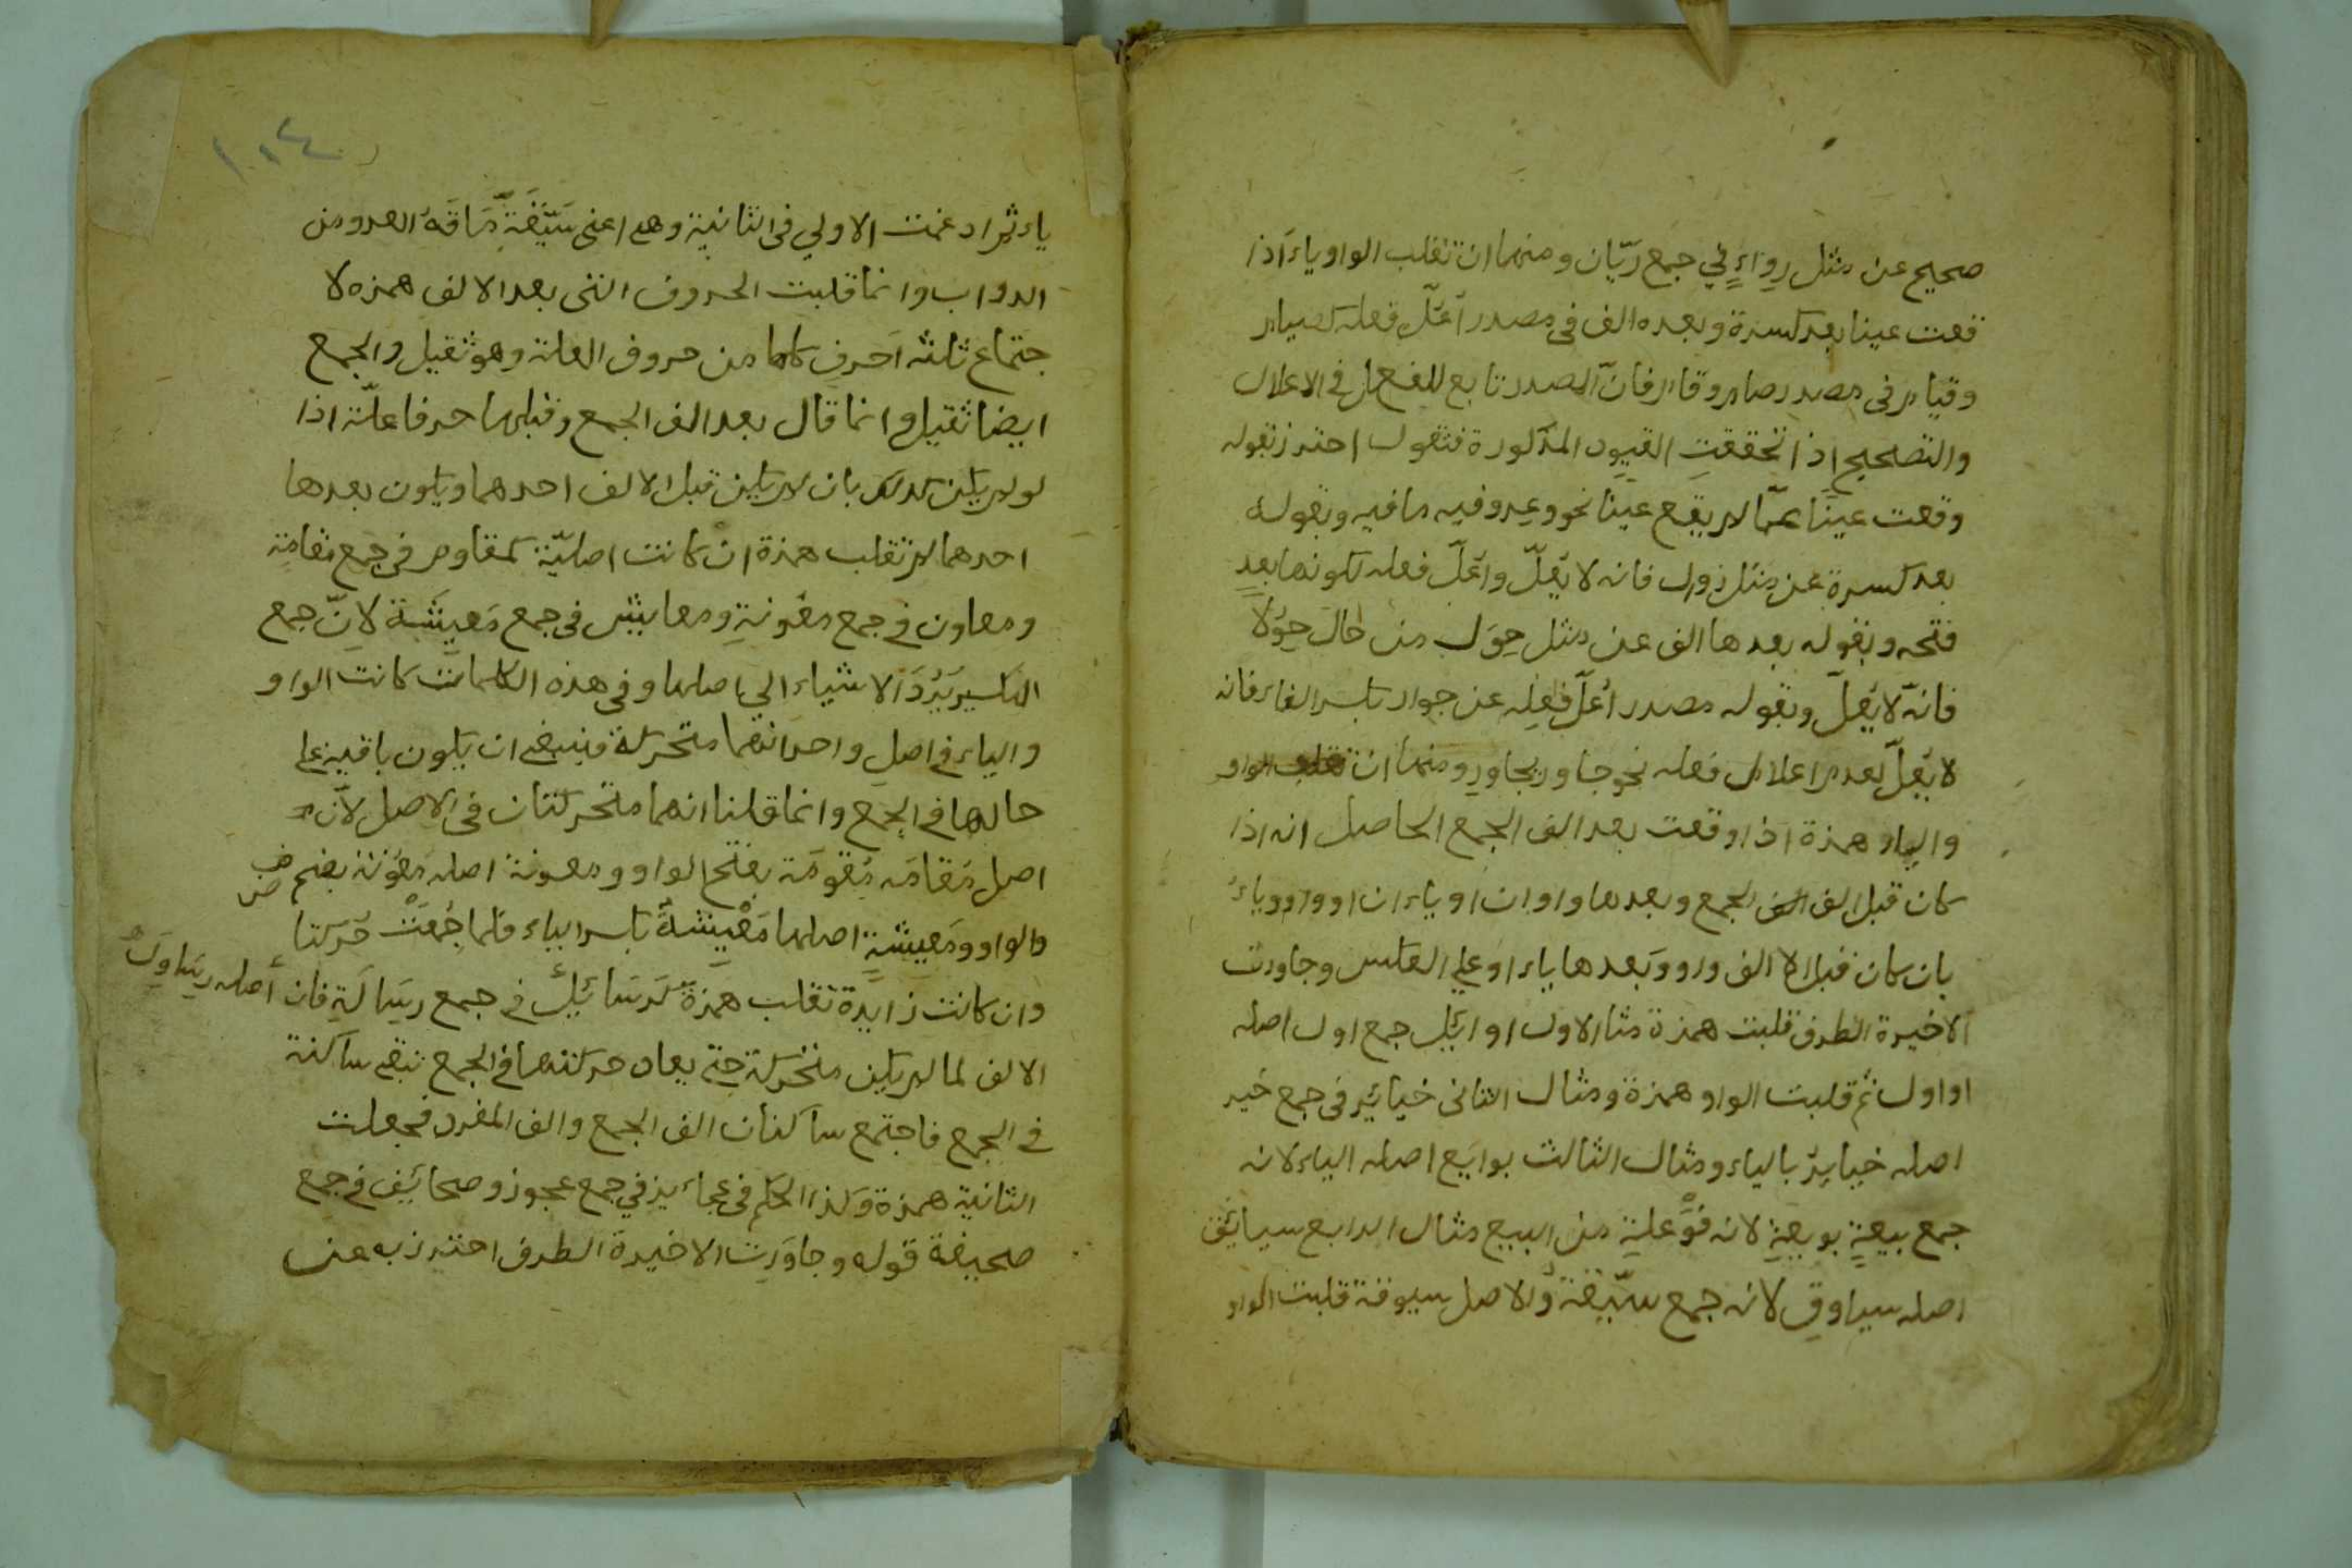 صحيح عن مثل رواءٍ في جمع ريّان ومنها ان تقلب الواو ياء اذا
قعت عينا بعد كسرة وبعده الف في مصدر اعلّ فعله كصيام
وقيام في مصدر صام وقام فانّ المصدر تابع للفعل في الاعلال
والتصحيح اذا تحققت القيود المذكورة فتقول احترز بقوله
وقعت عينا عمّا لم يقع عينا نحو وعد وفيه ما فيه وبقوله
بعد كسرة عن مثل زوال فانه لا يعلّ واعلّ فعله لكونها بعد
فتحه وبقوله بعدها الف عن مثل حِوَل من حَالَ حِوَلًا
فانّه لا يعلّ وبقوله مصدر أعلّ فعله عن جوار بكسر الفاء فانه
لا يعلّ لعدم اعلال فعله نحو جاور يجاور ومنها ان تقلب الواو
والياء همزة اذا وقعت بعد الف الجمع الحاصل انه اذا
كان قبل الف الجمع وبعدها واوان او ياءان او واو وياء
بان كان قبل الالف واو وبعدها ياء او على العكس وجاورت
الاخيرة الطرف قلبت همزة مثال الاول اوائل جمع اول اصله
اواول ثم قلبت الواو همزة ومثال الثاني خيائر في جمع خير
اصله خياير بالياء ومثال الثالث بوايع اصله الياء لانه
جمع بيعةٍ بويعةٍ لانه فَوْعلةٍ من البيع مثال الرابع سيائق
اصله سياوق لانه جمع سيّقة والاصل سيوقة قلبت الواو
١٠٤
ياء ثم ادغمت الاولي في الثانية وهي اعني سَيّقَةٍ مَا سَاقَهُ العدو من
الدواب وانما قلبت الحروف التي بعد الالف همزه لا
جتماع ثلثه احرف كلها من حروف العلة وهو ثقيل والجمع
ايضا ثقيل وانما قال بعد الف الجمع وقبلها حرفا علّة اذا
لو لم يكن كذلك بان لم يكن قبل الالف احدهما ويكون بعدها
احدهما لم تقلب همزة ان كانت اصليّة كمقاوم في جمع مقامةٍ
ومعاون في جمع معونةٍ ومعايش في جمع مَعيشَة لانّ جمع
التكسير يَرُدّ الاشياء الي اصلها وفي هذه الكلمات كانت الواو
والياء في اصل واحداتهما متحركة فينبغي ان يكون باقية علي
حالها في الجمع وانما قلنا انهما متحركتان في الاصل لانّ
اصل مَقامَه مَقومَة بفتح الواو ومعونة اصله معْوُنة بضم
الواو ومَعيشةٍ اصلها مَعْيِشةً بكسر الياء فلما جُمعَتْ حُرّكتا
وان كانت زايدة تقلب همزة كرسَائِلُ في جمع رِسَالَةٍ فان أصله رساول
الالف لما لم يكن متحركة حتي يعاد حركتها في الجمع تبقي ساكنة
في الجمع فاجتمع ساكنان الف الجمع والف المفرد فجعلت
الثانية همزة وكذا الحكم في عجاءيز في جمع عجوز وصحائف في جمع
صحيفة قوله وجاوَرت الاخيرة الطرف احترز به عن